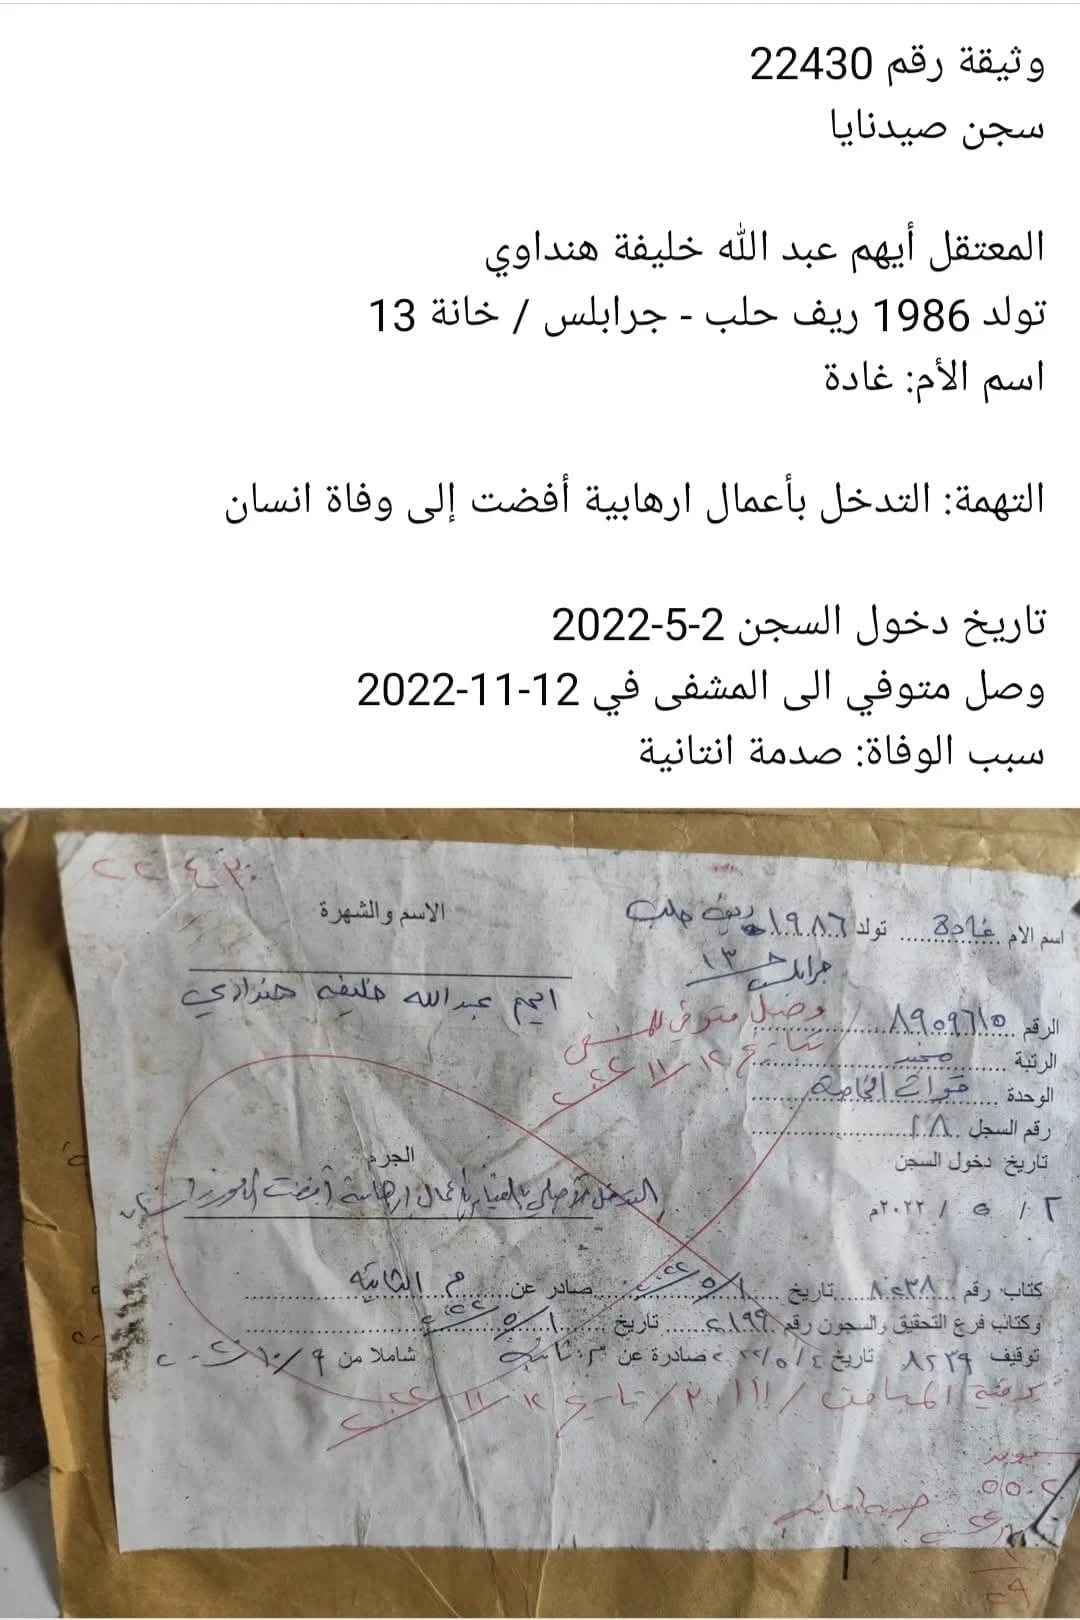 وثيقة رقم 22430
سجن صيدنايا
المعتقل أيهم عبد الله خليفة هنداوي
تولد 1986 ريف حلب - جرابلس / خانة 13
اسم الأم: غادة
التهمة: التدخل بأعمال ارهابية أفضت إلى وفاة انسان
تاريخ دخول السجن 2-5-2022
وصل متوفي الى المشفى في 12-11-2022
سبب الوفاة: صدمة انتانية
٢٢٤٣٠
اسم الام غادة تولد ١٩٨٦ ريف حلب
جرابلس خ ١٣
الاسم والشهرة
ايهم عبدالله خليفه هنداوي
الرقم ٨٩٥٩٦١٥
الرتبة مجند
الوحدة قوات الخاصة
رقم السجل
تاريخ دخول السجن
٢ / ٥ / ٢٠٢٢م
وصل متوفي للمشفى
بتاريخ ١٢/١١/٢٠٢٢
الجرم
بأعمال ارهابية أفضت
كتاب رقم ٨٢٣٨ تاريخ ١/٥/٢٢ صادر عن م الثانيه
وكتاب فرع التحقيق والسجون رقم ٢١٩٩ تاريخ ١/٥/٢٠٢٢
توقيف ٨٢٣٩ تاريخ ٤/٥/٢٠٢٢ صادرة عن شاملا من ٩/١٠/٢٠
برقية تاريخ ١٢/١١/٢٠٢٢